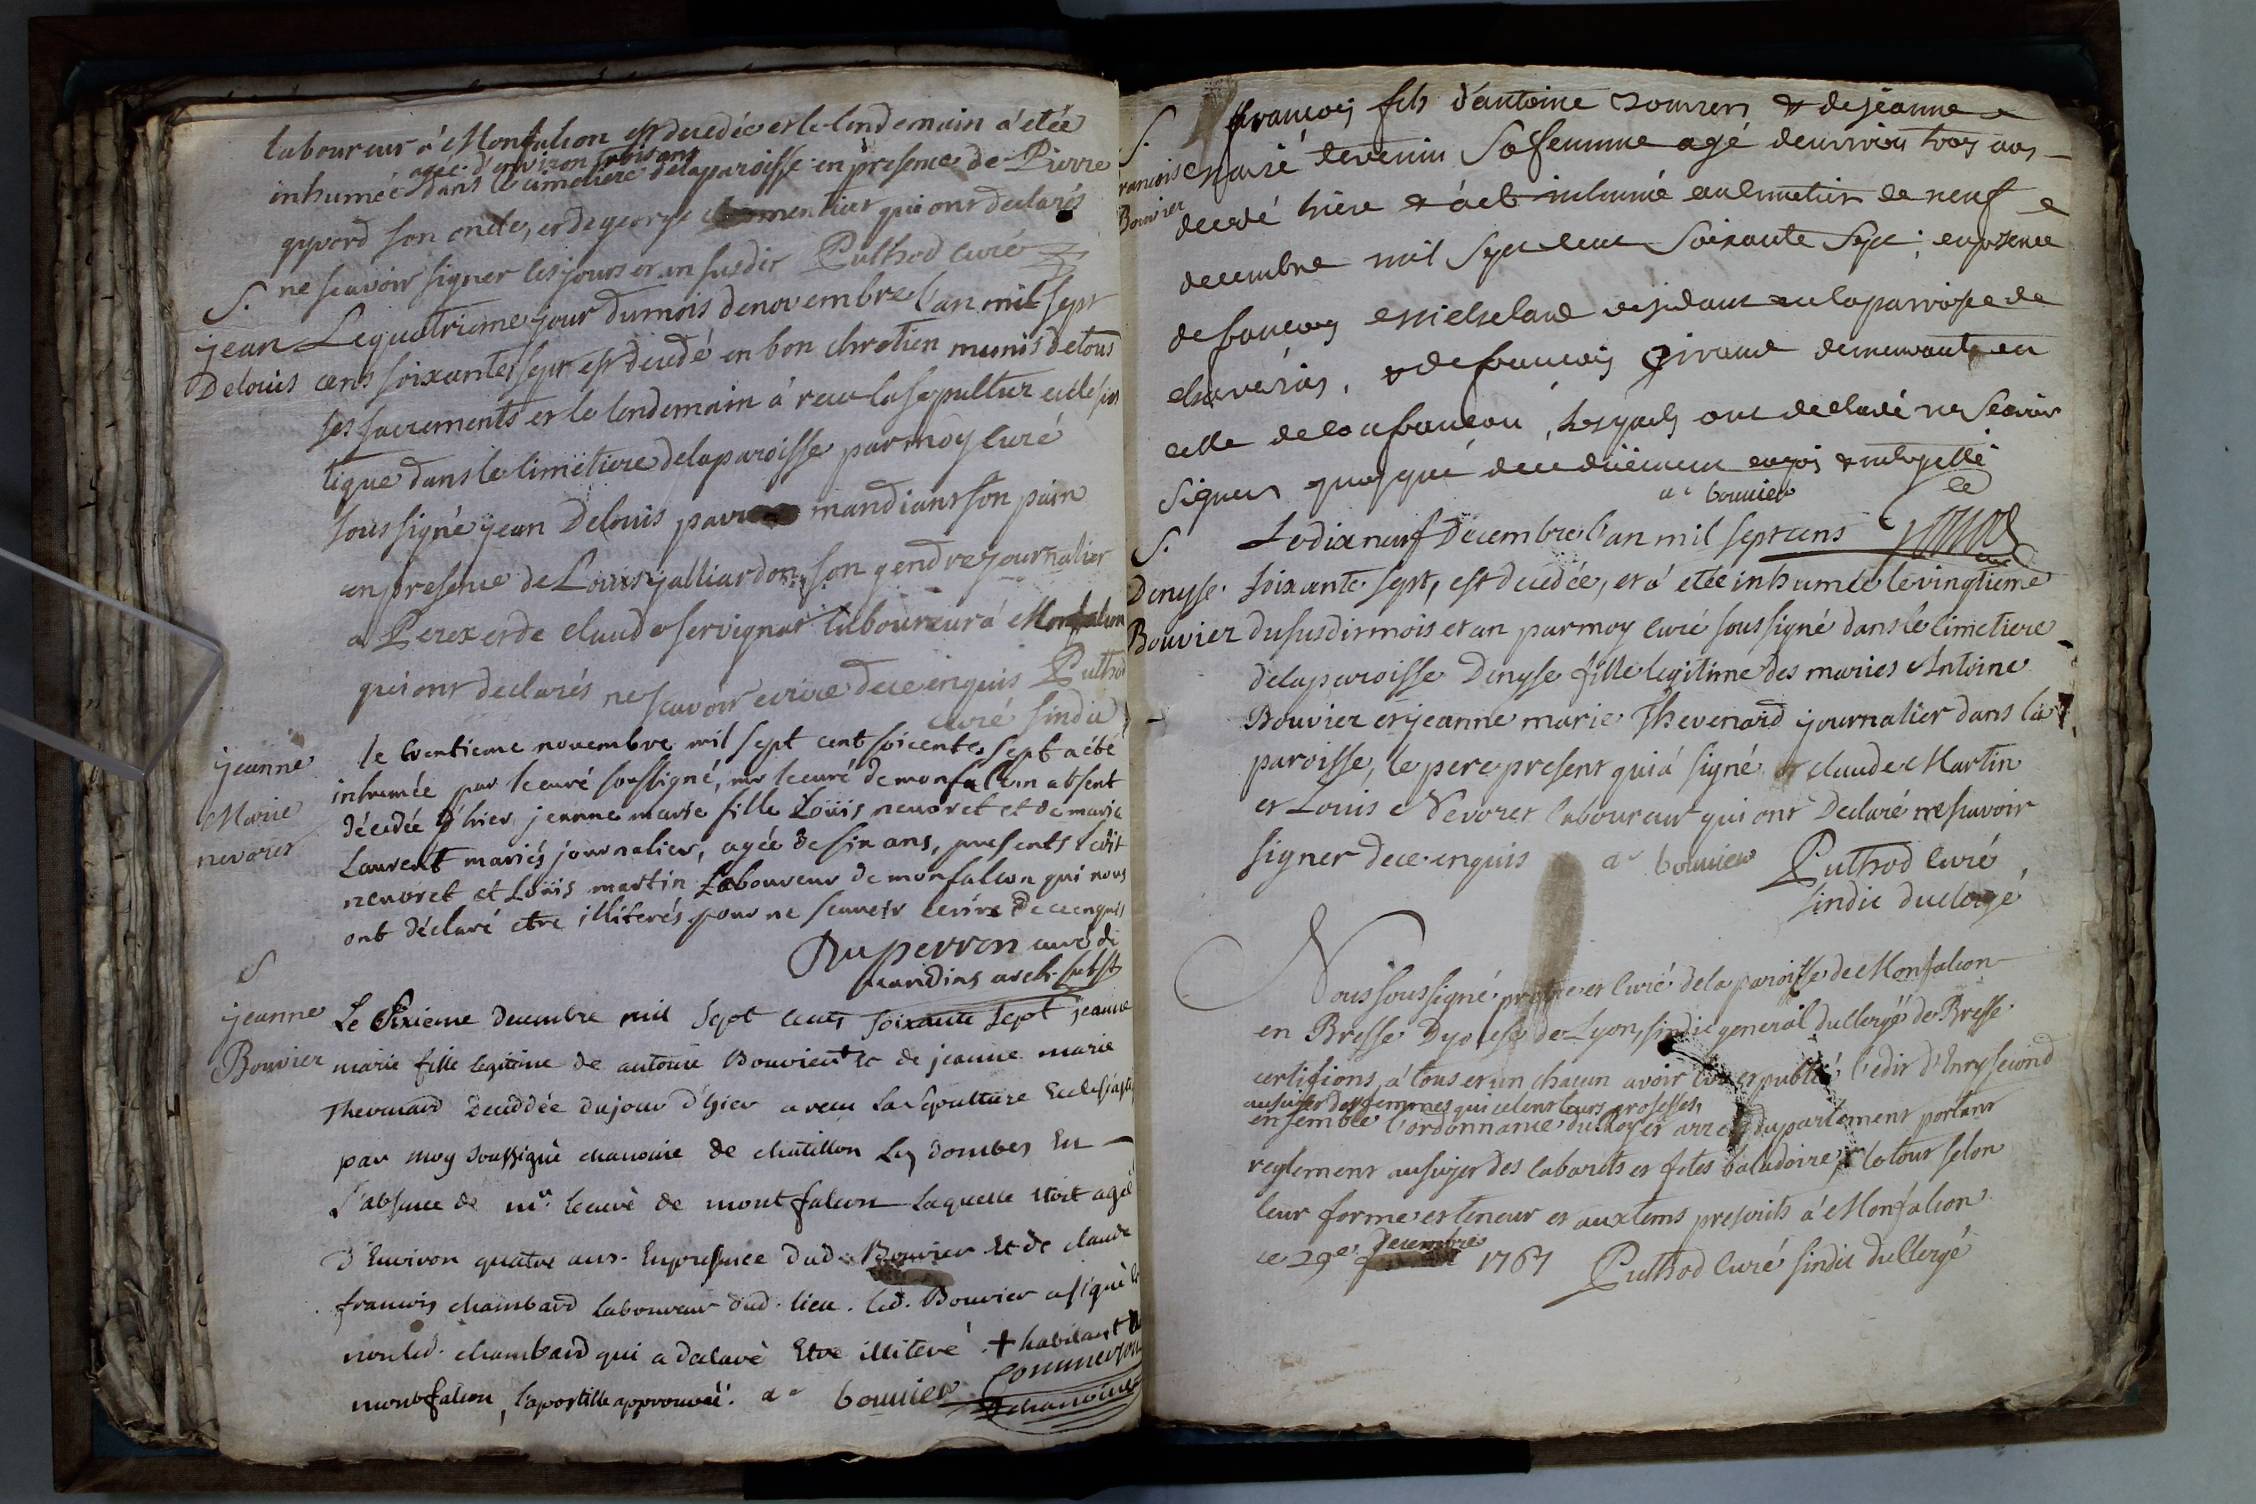 laboureur á Monfalcon est decedée et le lendemain á etée
agée d'environ trois ans
inhumée dans le cimetiere delaparoisse en presence de Pierre
son oncle, et de george qui ont declarés
ne scavoir signer les jours et an susdit Puthod curé
S.
jean
Delouis
Le quatrieme jour dumois denovembre l'an mil sept
cens soixante sept est decedé en bon chretien munis detous
ses sacrements et le lendemain á recu la sepulture eclesias
tique dans le cimetiere delaparoisse par moy curé
sous signé jean Delouis mandiant son pain
en presence de Louis galliardon son gendre journalier
a Perex et de claude servignat laboureur á Monfalcon
qui ont declarés ne scavoir ecrire de ce enquis Puthod
curé sindic
jeanne
Marie
nevoret
le trentieme novembre mil sept cent soicente sept a été
inhumée par le curé soussigné, mr le curé de monfalcon absent
décédée d'hier jeanne marie fille Loüis nevoret et de marie
Laurent mariés journalier, agée de six ans, presents ledit
nevoret et Loüis martin Laboureur de monfalcon qui nous
ont déclaré etre illiterés pour ne scavoir ecrire de ce enquis
Duperron curé de
archi.
S
jeanne
Bouvier
Le Sixieme decembre mil Sept cents soixante sept jeanne
marie fille legitime de antoine Bouvier et de jeanne marie
Thevenard decddée dujour d'hier a recu La Sepulture Eclesiastiq
par moy soussigné chanoine de chatillon Les dombes En
l'absence de mr. le curé de montfalcon Laquelle etoit agée
d'Environ quatre ans. En presence dud. Bouvier Et de claude
francois chambard laboureur dud. lieu. led. Bouvier a signé &
non led. chambard qui a declaré Etre illiteré. + habitant a
montfalcon, l'apostille approuvée. ae bouvier Commerson
chanoine
S.
francois
Bouvier
francois fils d'antoine & de jeanne
marie sa femme agé denviron trois ans
decedé hier & a eté inhumé au cimetier ce neuf
decembre mil sept cent soixante sept; en presence
de francois residant en la parroisse de
chaveria, & de francois giraud demeurant en
celle de, lesquels ont declaré ne scavoir
signer de ce duement enquis & interpellé
ae bouvier
S.
Denyse
Bouvier
Le dix neuf Decembre l'an mil sept cens
soixante sept, est decedée, et á etée inhumée le vingtieme
du susdit mois et an par moy curé sous signé dans le cimetiere
delaparoisse Denyse fille legitime des mariés Antoine
Bouvier et jeanne marie Thevenard journalier dans la
paroisse, le pere present qui á signé et claude Martin
et Louis Nevoret laboureur qui ont Declaré ne scavoir
signer de ce enquis ae bouvier Puthod curé
sindic du clergé
Nous soussigné prêtre et curé de la paroisse de Monfalcon
en Bresse Dyocese de Lyon, sindic general du clergé de Bresse
certifions á tous et un chacun avoir lu et publié l'edit d'Enry second
au sujet des femmes qui celent leurs grosesses,
ensemble l'ordonnance du Roy et arret du parlement portant
reglement au sujet des cabarets et fetes baladoire, le tout selon
leur forme et teneur et aux tems prescrits á Monfalcon
Decembre
ce 29e 1767 Puthod curé sindic du clergé